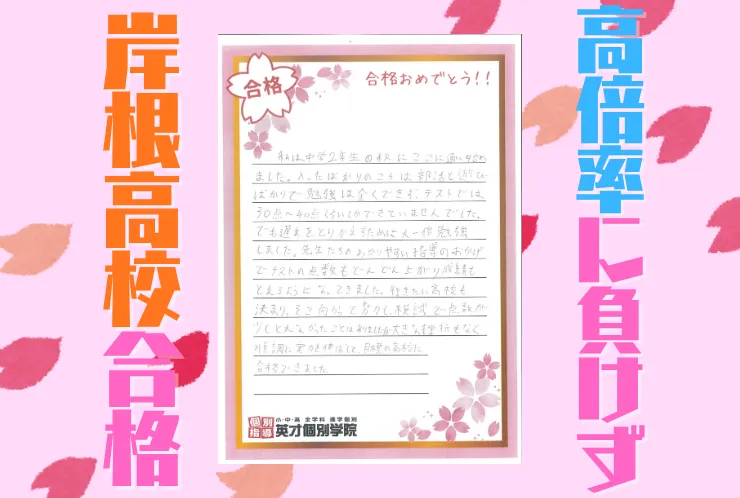 高倍率に負けず
岸根高校合格
合格
合格おめでとう!!
私は中学2年生の秋にここに通い始め
ました。入ったばかりのころは部活と遊び
ばかりで勉強は全くできず、テストでは
30点〜40点くらいしかできていませんでした。
でも遅れをとりかえすために人一倍勉強
しました。先生たちのわかりやすい指導のおかげ
でテストの点数もどんどん上がり成績も
とれるようになってきました。行きたい高校も
決まり、そこに向かって努力し、模試で点数が
少しとれなかったことはありましたが大きな挫折もなく
順調に実力を伸ばして、目標の高校に
合格できました。
個別指導
小・中・高 全学科 進学個別
英才個別学院